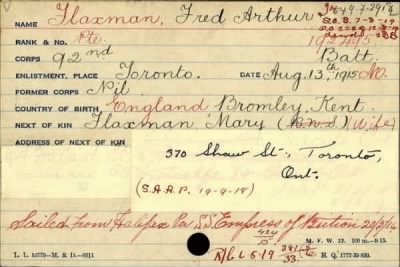 NAME Flaxman, Fred Arthur
S.O.S. 7-8-19
RANK & NO. Pte. 192495
CORPS 92nd Batt.
ENLISTMENT, PLACE Toronto. DATE Aug. 13th, 1915
FORMER CORPS Nil
COUNTRY OF BIRTH England Bromley, Kent.
NEXT OF KIN Flaxman Mary (Wife)
ADDRESS OF NEXT OF KIN
370 Shaw St., Toronto,
Ont.
(S.A.A.P. 19-9-19)
Sailed from Halifax Per S.S. Empress of Britain
M. F. W. 22. 100 m.-9-15.
L. L. 83770—M. & D.—6911. H. Q. 1772-39-839.